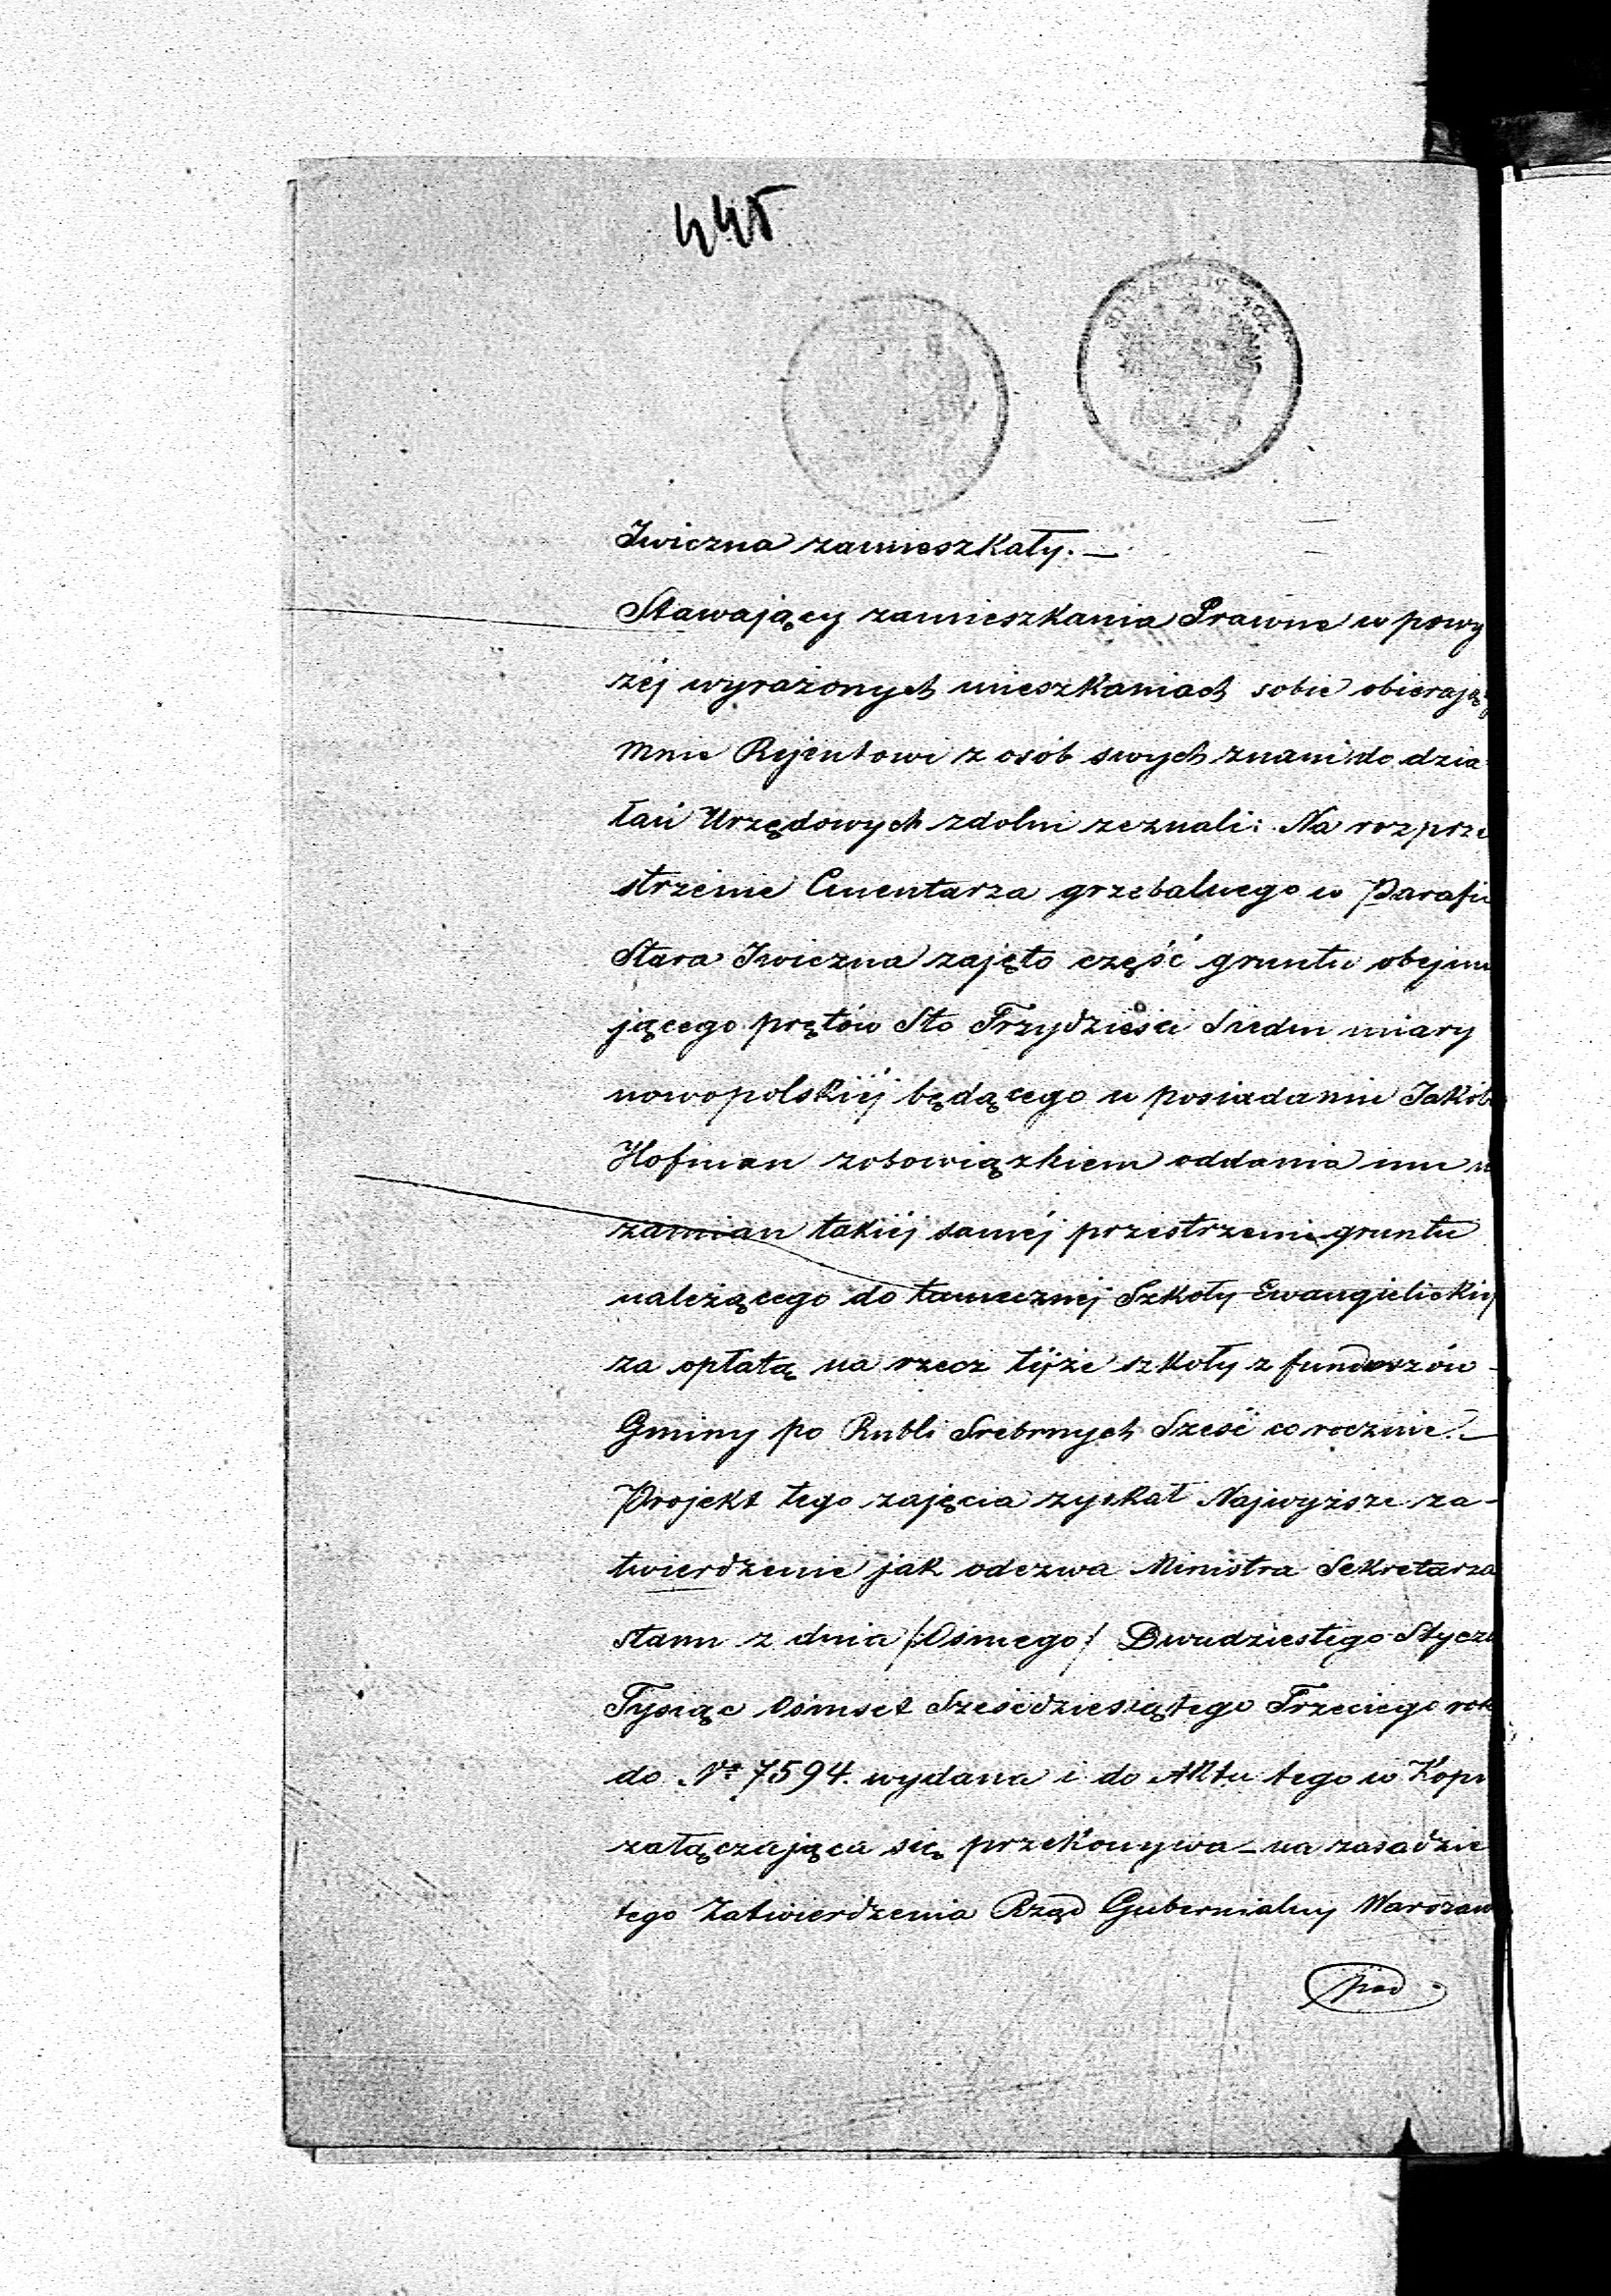 445
Iwiczna zamieszkały. —
Stawający zamieszkania Prawne w powy
żéj wyrażonych mieszkaniach sobie obierając
mnie Rejentowi z osób swych znani do dzia
łań Urzędowych zdolni zeznali: Na rozprze
strzenie Cmentarza grzebalnego w Parafii
Stara Iwiczna zajęto część gruntu obejmu
jącego prętów Sto Trzydzieści Siedm miary
nowopolskiéj będącego w posiadaniu Jakóba
Hofman zobowiązkiem oddania mu w
zamian takiéj saméj przestrzeni gruntu
należącego do tamecznéj Szkoły Ewangielickiéj
za opłatą na rzecz téjże szkoły z funduszów
Gminy po Rubli Srebrnych Sześć corocznie. —
Projekt tego zajęcia zyskał Najwyższe za-
twierdzenie jak odezwa Ministra Sekretarza
stanu z dnia /Osmego/ Dwudziestego Stycz
Tysiąc Ośmset Sześćdziesiątego Trzeciego rok
do Nr 7594. wydana i do Aktu tego w Kopi
załączająca się przekonywa – na zasadzie
tego Zatwierdzenia Rząd Gubernialny Warszaw
pod